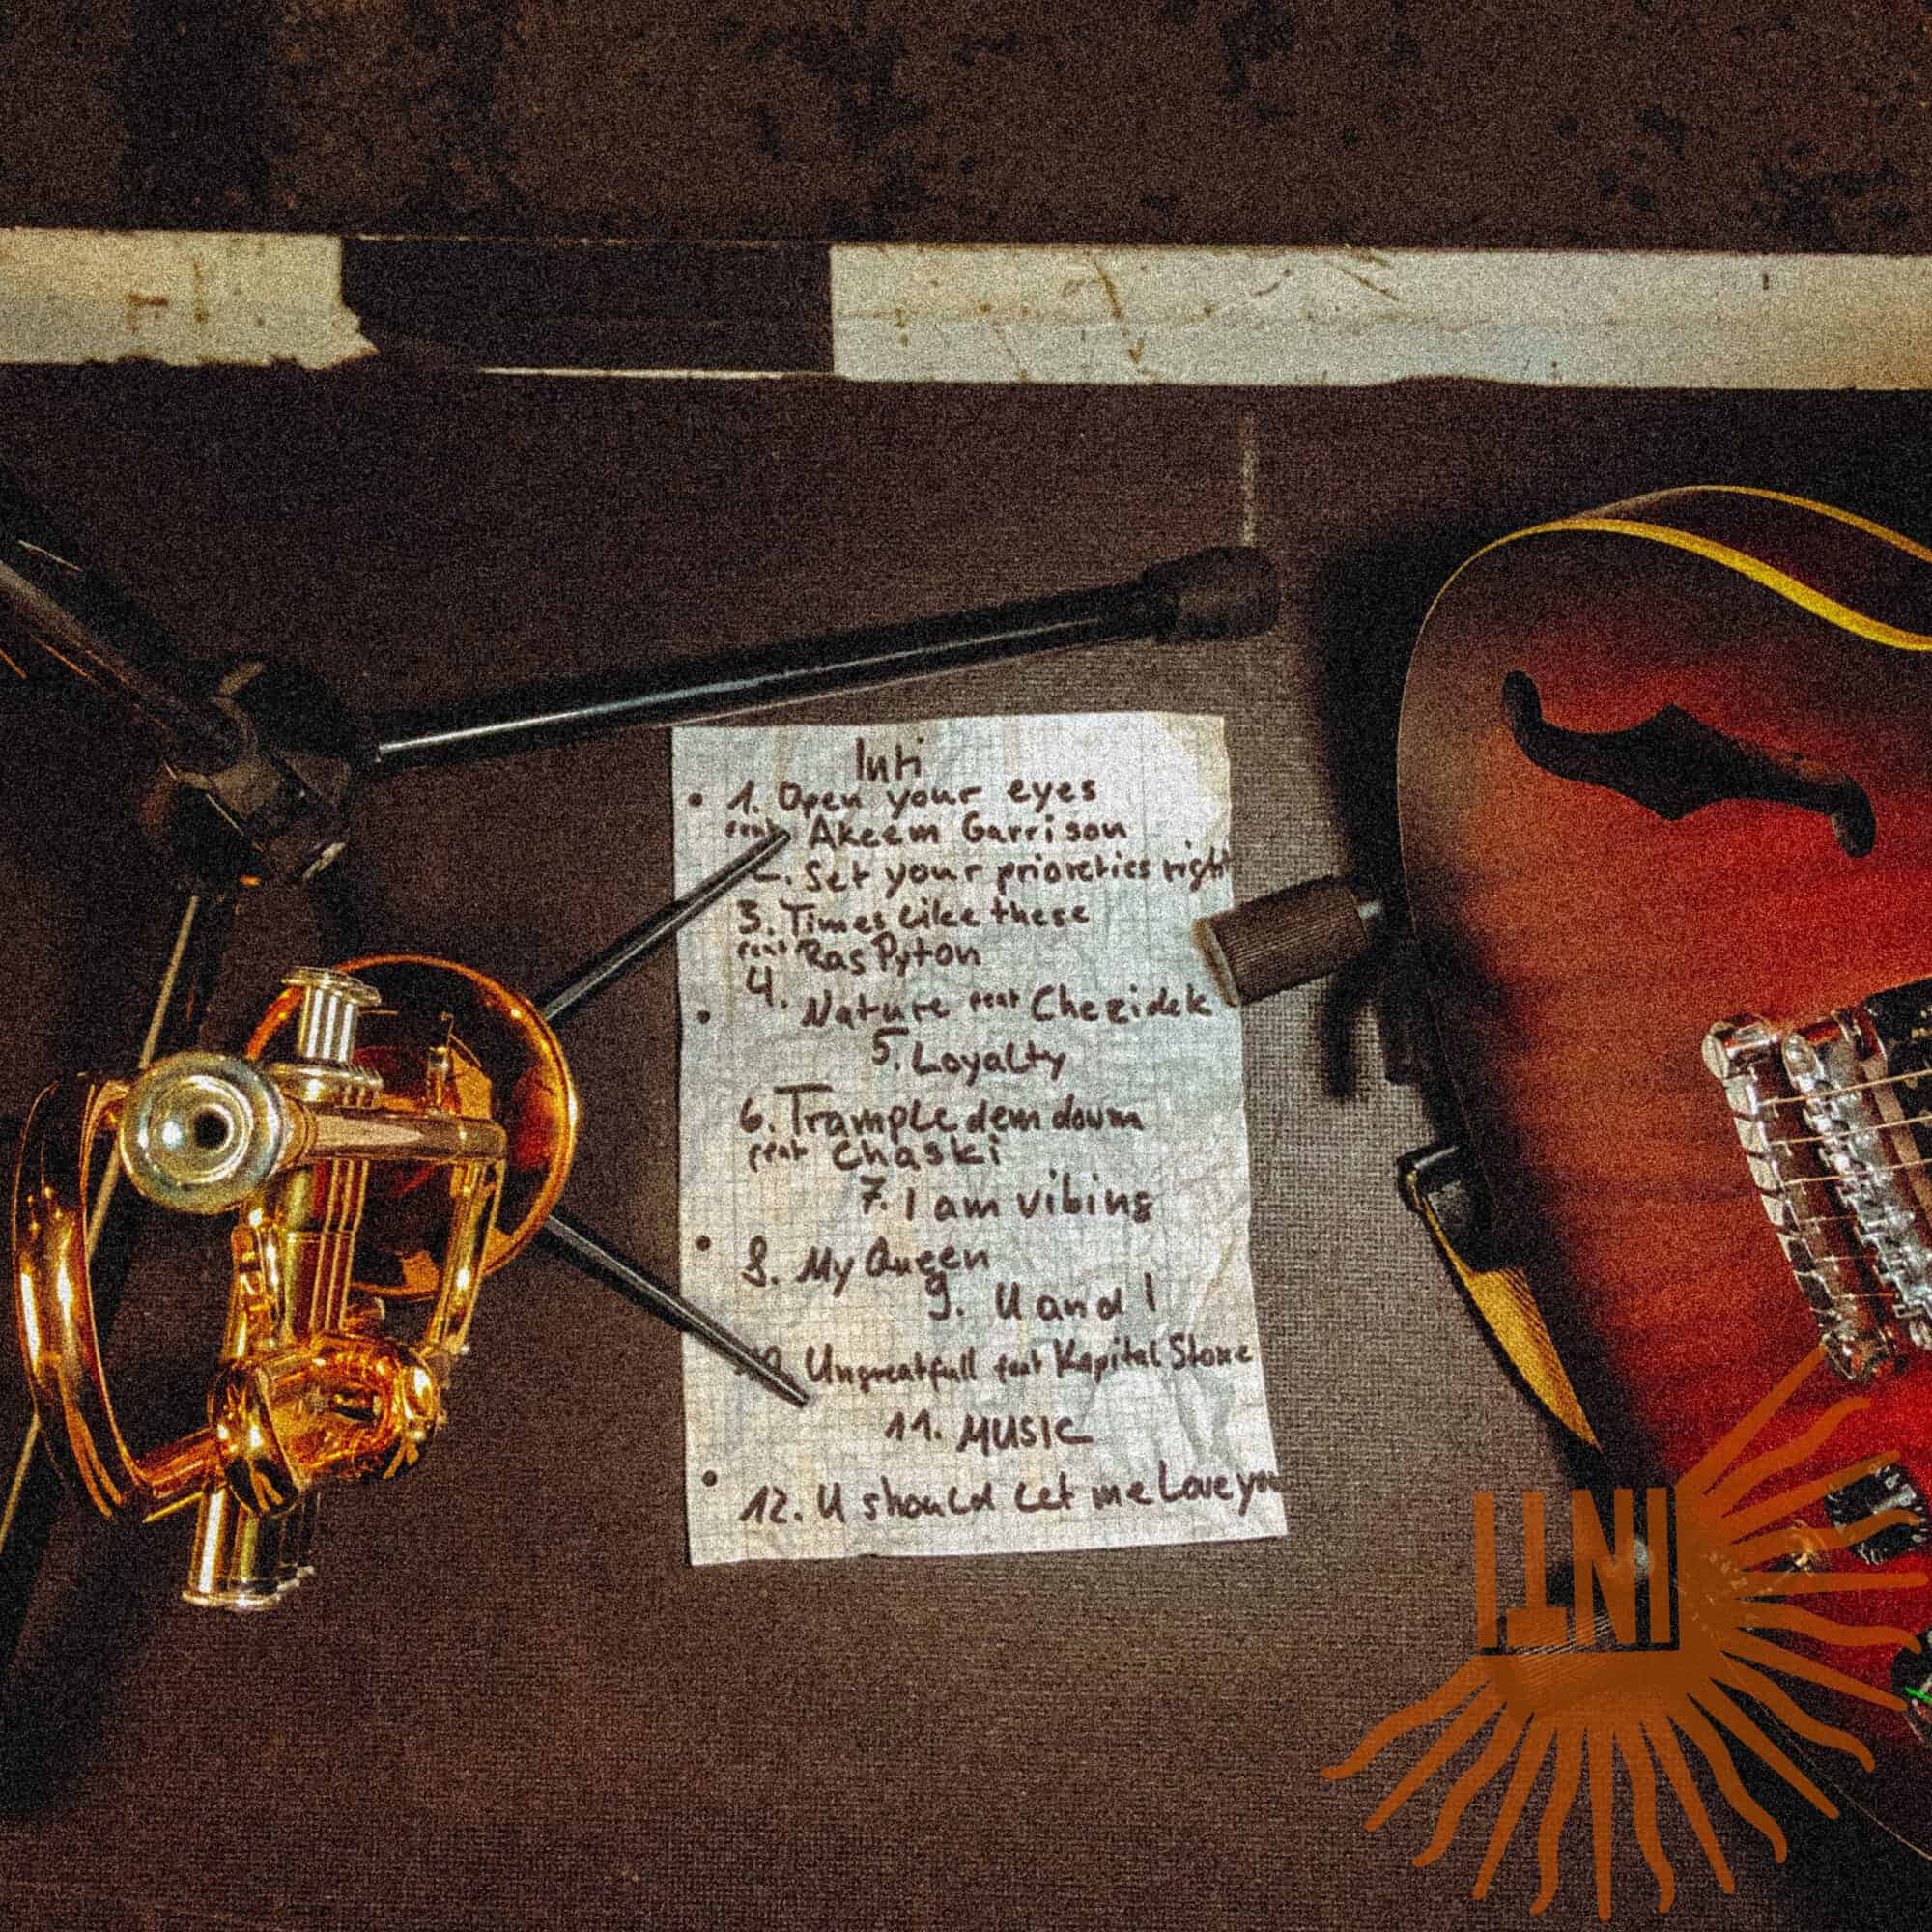 Inti
1. Open your eyes
feat Akeem Garrison
2. Set your prioreties right
3. Times like these
feat Ras Pyton
4. Nature feat Chezidek
5. Loyalty
6. Trample dem down
feat Chaski
7. I am vibing
8. My Queen
9. U and I
10 Ungreatfull feat Kapital Stone
11. MUSIC
12. U should let me love you
INTI